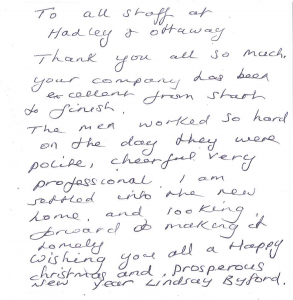 To all staff at
Hadley & Ottaway
Thank you all so much.
your company has been
excellent from start
to finish.
The men worked so hard
on the day they were
polite, cheerful very
professional. I am
settled into the new
home, and looking
forward to making it
homely
wishing you all a Happy
christmas and prosperous
New year Lindsay Byford.